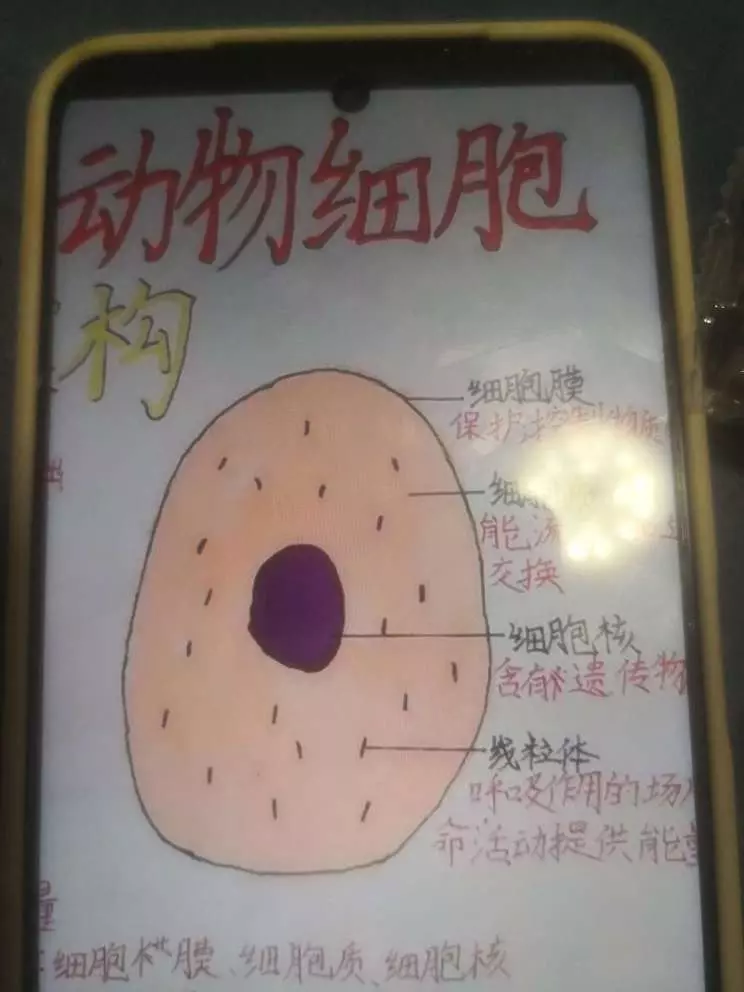 动物细胞
构
细胞膜
保护控制物质
细
能流
交换
细胞核
含有遗传物
线粒体
呼吸作用的场
命活动提供能量
量
细胞膜、细胞质、细胞核